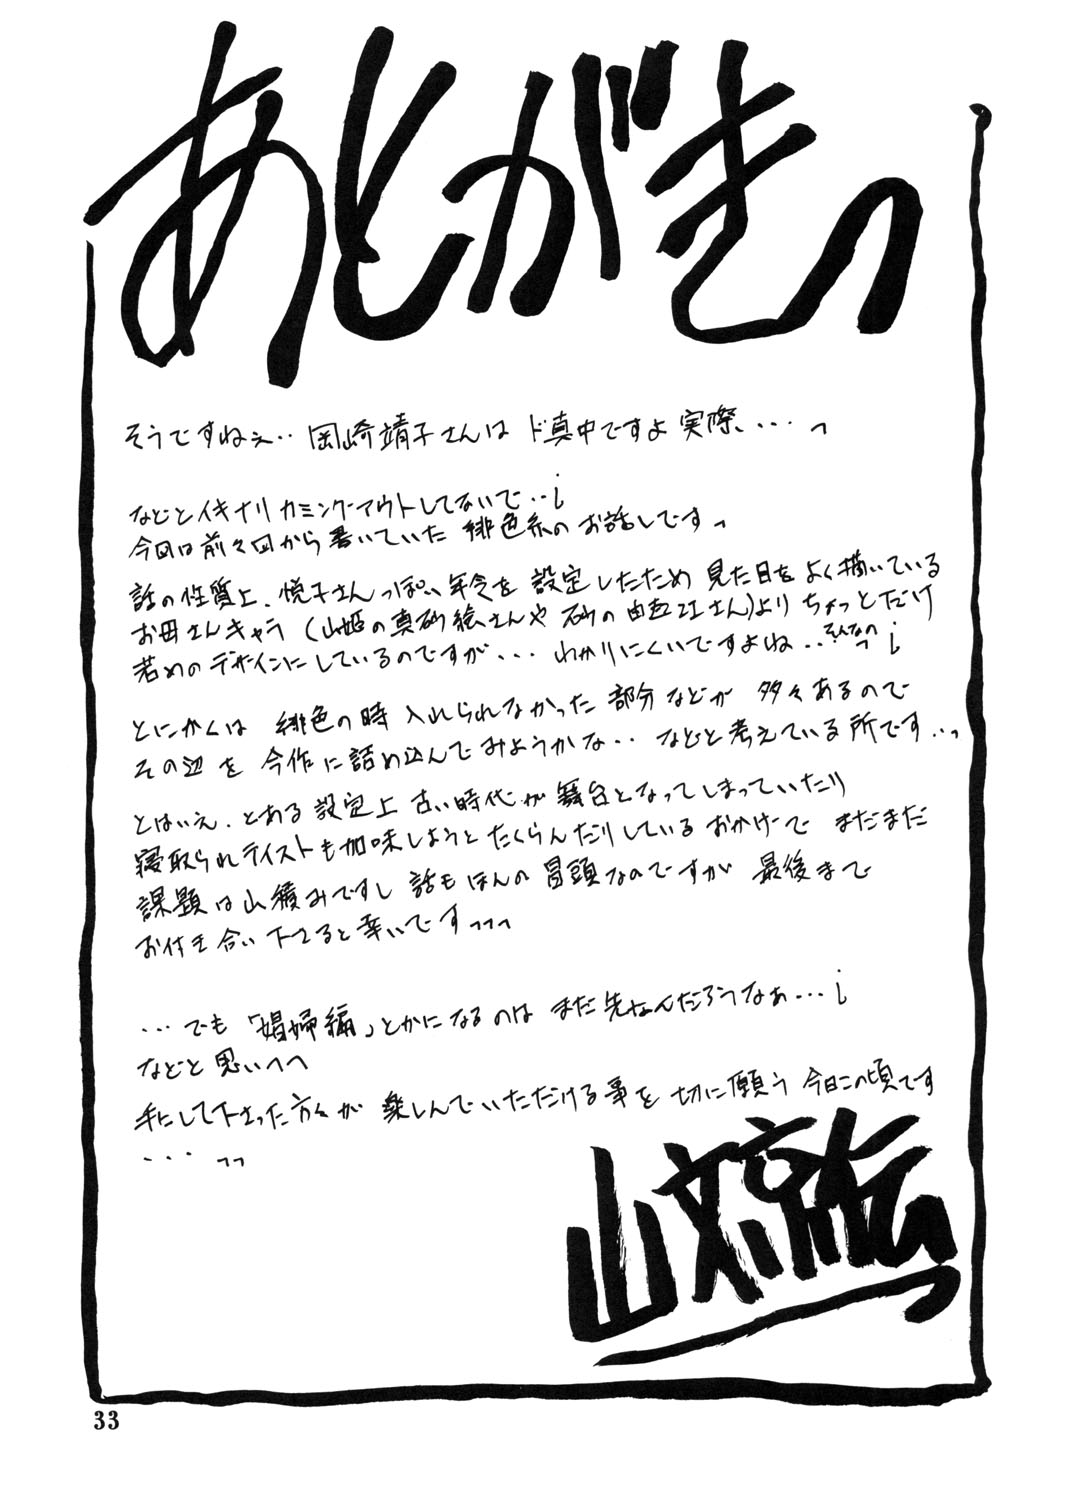 あとがきっ
そうですねぇ‥岡崎靖子さんは ド真中ですよ実際、‥‥っ
などとイキナリカミングアウトしてないで‥¡
今回は前々回から書いていた 緋色系のお話しですっ
話の性質上、悦子さんっぽい年令を設定したため 見た目をよく描いている
お母さんキャラ(山姫の真砂絵さんや 砂の由岐江さん)よりちょっとだけ
若めのデザインにしているのですが‥‥ わかりにくいですよね‥そんなのっ¡
とにかくは 緋色の時 入れられなかった部分などが 多々あるので
その辺を 今作に詰め込んでみようかな‥ などと考えている所です‥っ
とはいえ、とある設定上 古い時代が舞台となってしまっていたり
寝取られテイストも加味しようとたくらんだりしているおかげで まだまだ
課題は山積みですし 話もほんの冒頭なのですが 最後まで
お付き合い下さると幸いですっっっ
‥‥でも「娼婦編」とかになるのは まだ先なんだろうなぁ‥‥¡
などと思いつつ
手にして下さった方々が 楽しんでいただける事を 切に願う 今日この頃です
‥‥っっ
山文京伝
33